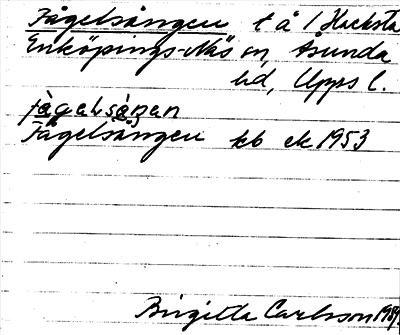 Fågelsången t å / Hacksta
Enköpings-Näs sn, Åsunda
hd, Upps l.
fågəlsåŋan
Fågelsången kb ek 1953
Birgitta Carlsson 1989